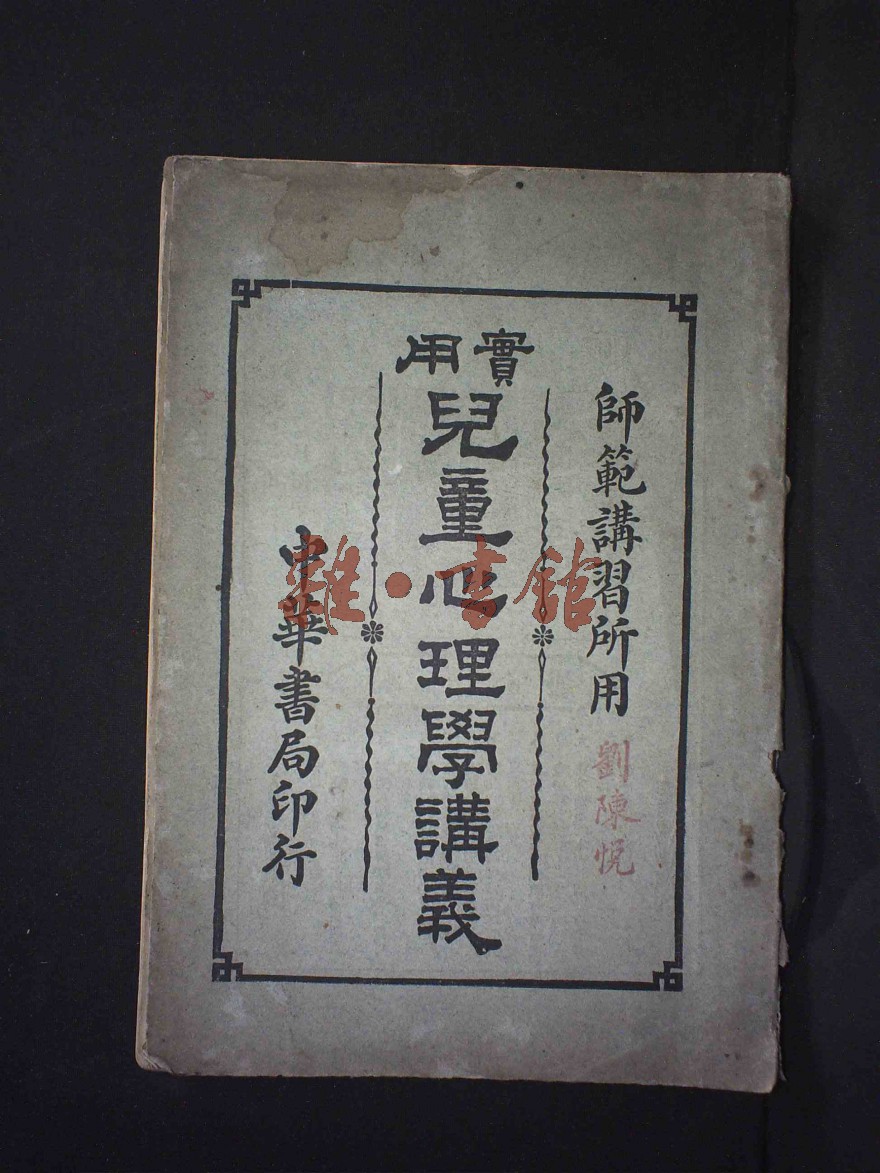 師範講習所用
劉陳悅
實用
兒童心理學講義
中華書局印行
雜·書館